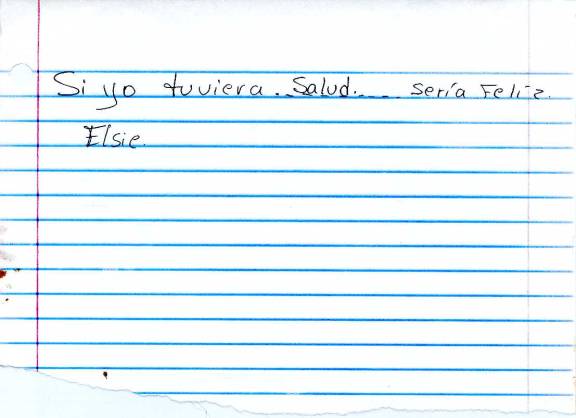 Si yo tuviera. Salud..... sería Feliz.
Elsie.